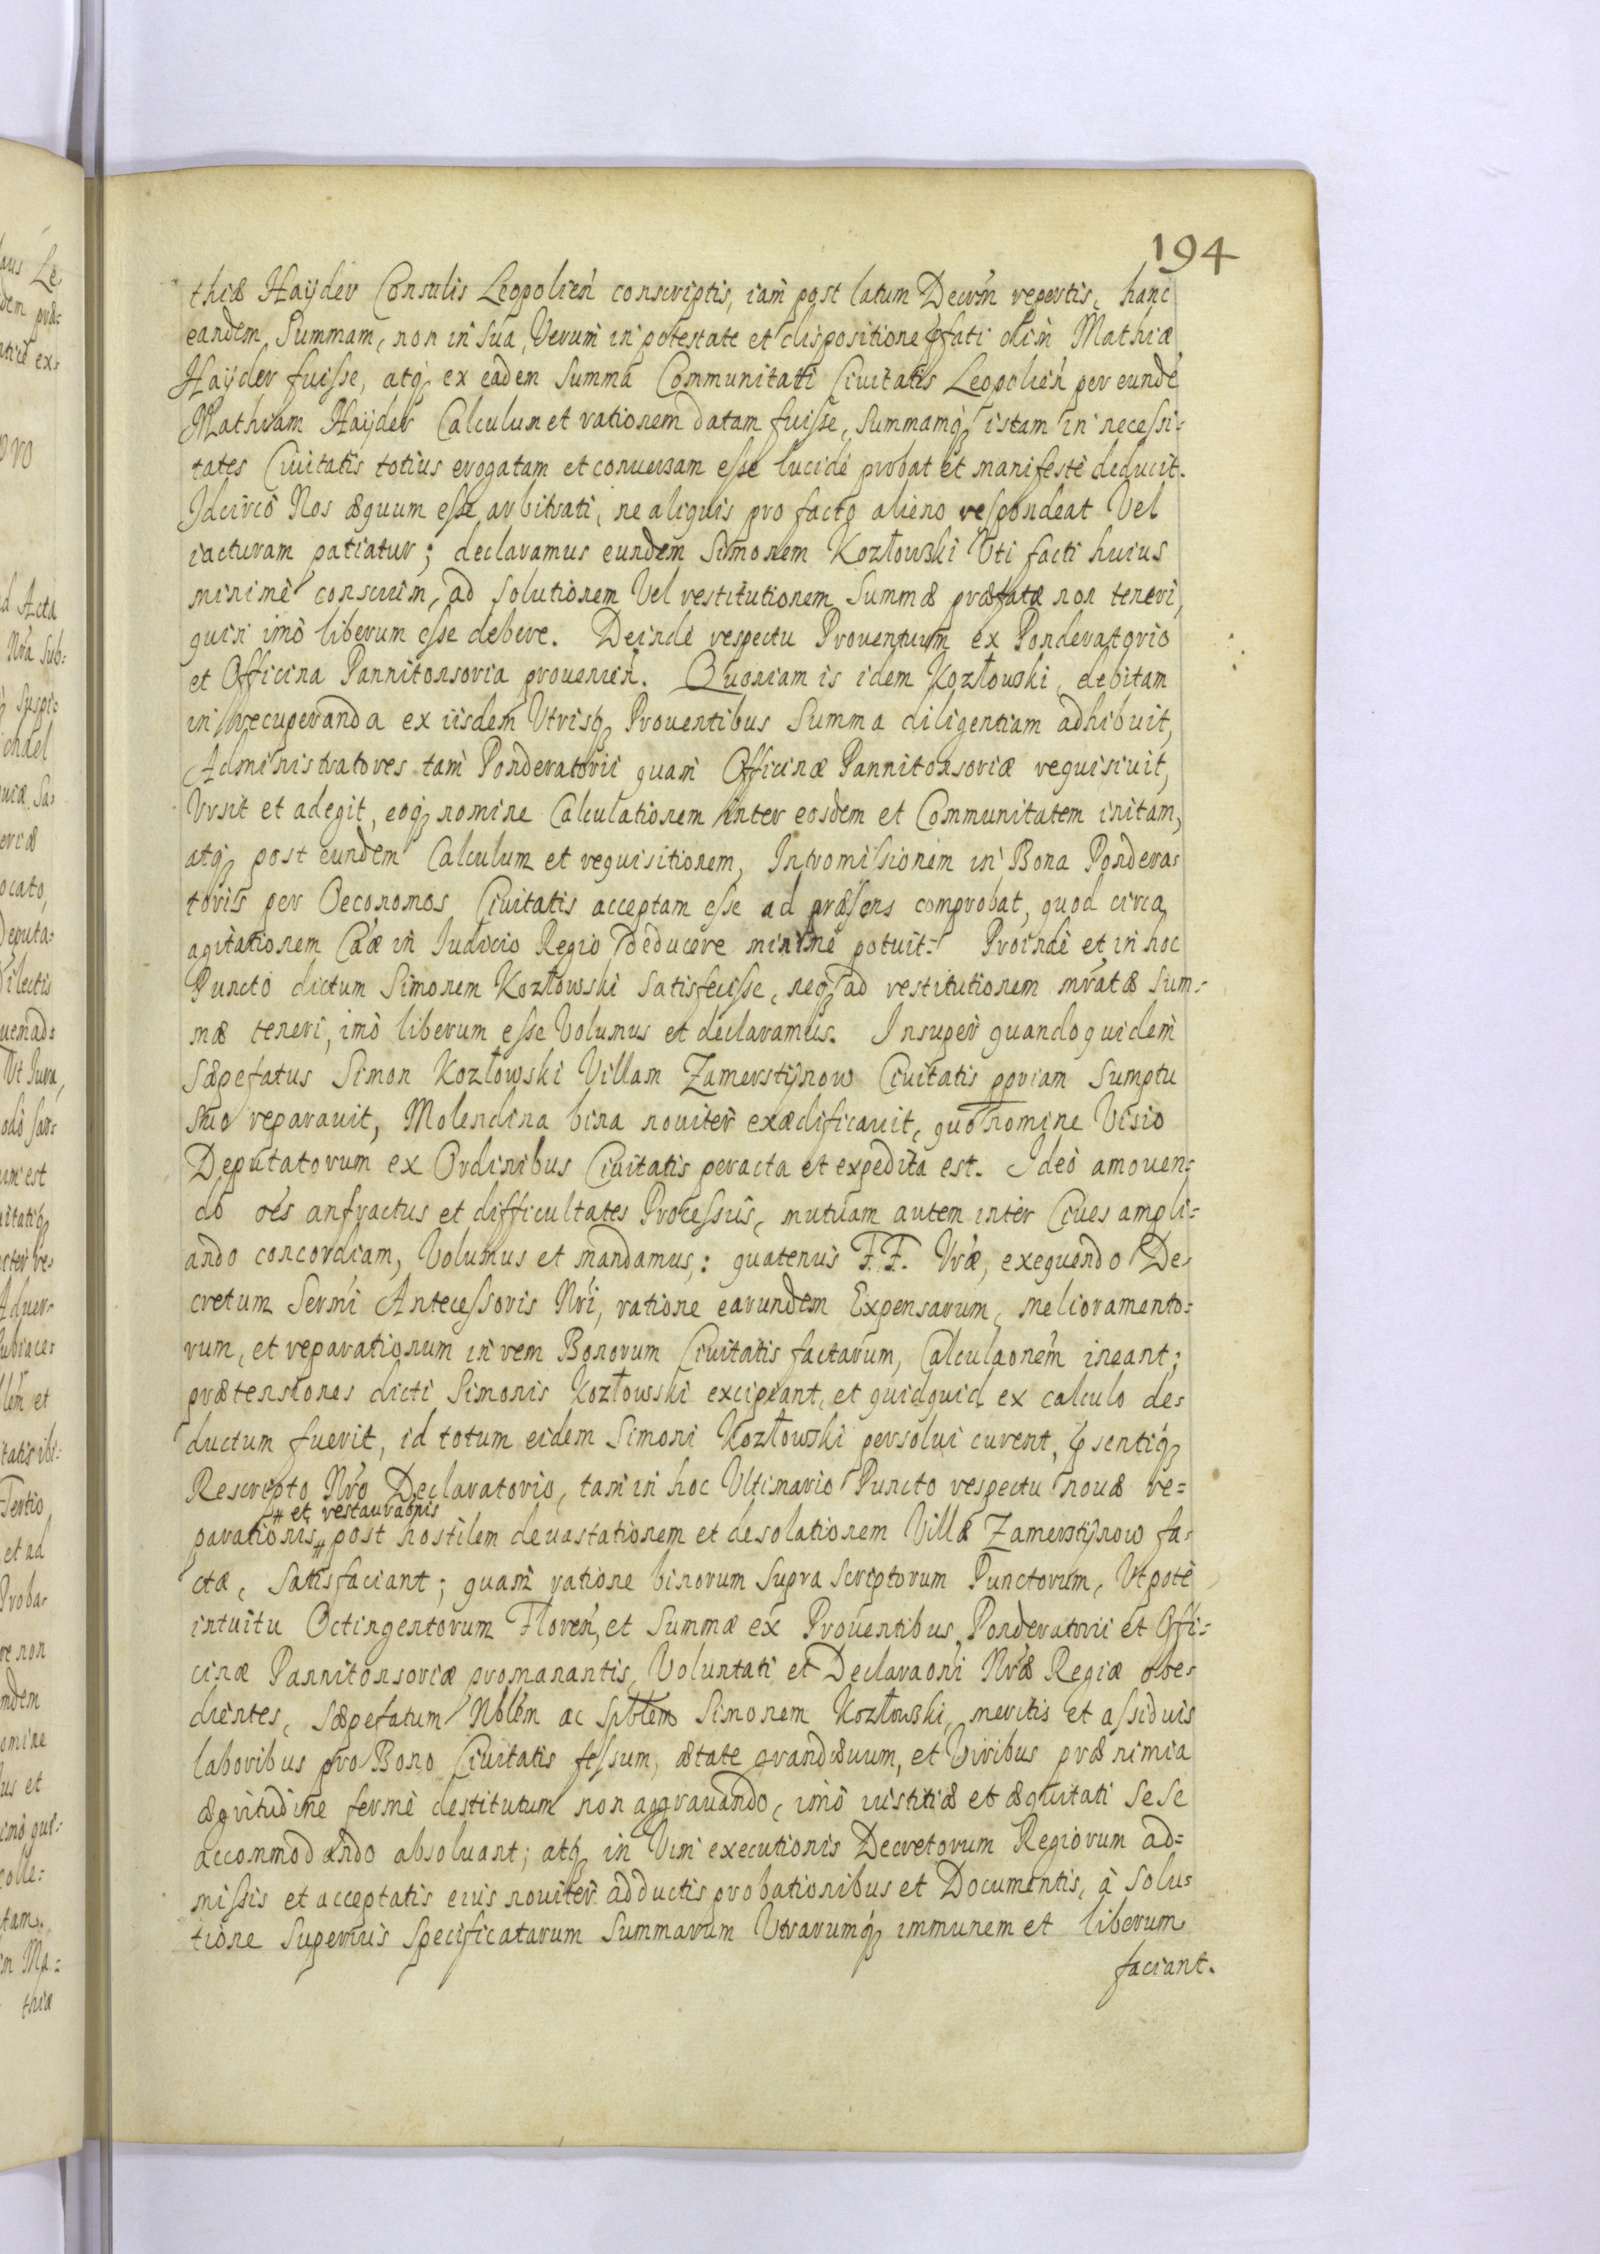 194
thiæ Haÿder Consulis Leopolien̄ conscriptis, iam post latum Decr̄m repertis, hanc
eandem Summam, non in sua, Verum in potestate et dispositione p̄fati olim Mathiæ
Haÿder fuisse, atq́ ex eadem Summa Communitati Ciuitatis Leopolien̄ per eundē
Mathiam Haÿder Calculum et rationem datam fuisse, Summamq́ istam in necessi=
tates Ciuitatis totius erogatam et conuersam esse lucidè probat et manifestè deducit.
Idcircò Nos æquum esse arbitrati, ne aliquis pro facto alieno respondeat Vel
iacturam patiatur; declaramus eundem Simonem Kozłowski Vti facti huius
minimè conscium, ad solutionem Vel restitutionem Summæ præfatæ non teneri,
quin imò liberum esse debere. Deindè respectu Prouentuum ex Ponderatorio
et Officina Pannitonsoria prouenien̄. Quoniam is idem Kozłowski, debitam
in recuperanda ex iisdem Vtrisq́ Prouentibus Summa diligentiam adhibuit,
Administratores tam Ponderatorii quam Officinæ Pannitonsoriæ requisiuit,
Vrsit et adegit, eoq́ nomine Calculationem inter eosdem et Communitatem initam,
atq́ post eundem Calculum et requisitionem, Intromissionem in Bona Pondera=
toris per Oeconomos Ciuitatis acceptam esse ad præsens comprobat, quod circa
agitationem Cāæ in Iudicio Regio deducere minimè potuit. Proindè et in hoc
Puncto dictum Simonem Kozłowski satisfecisse, neq́ ad restitutionem mr̄atæ Sum=
mæ teneri, imò liberum esse Volumus et declaramus. Insuper quandoquidem
Sæpefatus Simon Kozłowski Villam Zamerstÿnow Ciuitatis pp̄riam Sumptu
suo reparauit, Molendina bina nouiter exædificauit, quo nomine Visio
Deputatorum ex Ordinibus Ciuitatis peracta et expedita est. Ideò amouen=
do oēs anfractus et difficultates Processûs, mutuam autem inter Ciues ampli=
ando concordiam, Volumus et mandamus,: quatenus F.F. Vr̄æ, exequendo De=
cretum Serm̄i Antecessoris Nr̄i, ratione earundem Expensarum, melioramento=
rum, et reparationum in rem Bonorum Ciuitatis factarum, Calculaōnem ineant;
prætensiones dicti Simonis Kozłowski excipiant, et quidquid ex calculo de=
ductum fuerit, id totum eidem Simoni Kozłowski persolui curent, p̄sentiq́
Rescripto Nr̄o Declaratorio, tam in hoc Vltimario Puncto respectu nouæ re=
# et restauraōnis
parationis # post hostilem deuastationem et desolationem Villæ Zamerstÿnow fa=
ctæ, satisfaciant; quam ratione binorum supra scriptorum Punctorum, Vtpotè
intuitu Octingentorum Floren̄, et Summæ ex Prouentibus Ponderatorii et Offi=
cinæ Pannitonsoriæ promanantis, Voluntati et Declaraōni Nr̄æ Regiæ obe=
dientes, Sæpefatum Nblēm ac Sp̄tblem Simonem Kozłowski, meritis et assiduis
laboribus pro Bono Ciuitatis fessum, ætate grandæuum, et Viribus præ nimia
ægritudine fermè destitutum non aggrauando, imò iustitiæ et æquitati sese
accommodando absoluant; atq́ in Vim executionis Decretorum Regiorum ad=
missis et acceptatis eius nouiter adductis probationibus et Documentis, à solu=
tione superius specificatarum Summarum Vtrarumq́ immunem et liberum
faciant.